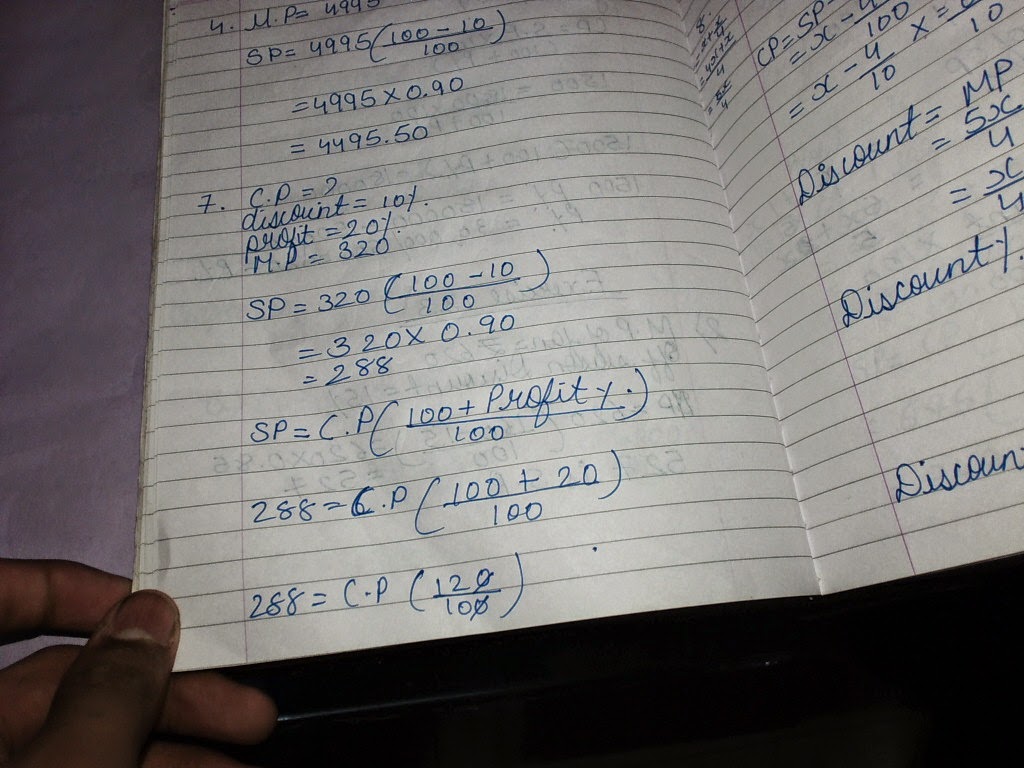 4. M.P = 4995
SP = 4995 (100 - 10 / 100)
= 4995 × 0.90
= 4495.50
7. C.P = ?
discount = 10%.
profit = 20%.
M.P = 320
SP = 320 (100 - 10 / 100)
= 320 × 0.90
= 288
SP = C.P (100 + Profit %. / 100)
288 = C.P (100 + 20 / 100)
288 = C.P (120 / 100)
CP = SP -
= x - 4 / 100
= x - 4 / 10 ×
10
Discount = MP
= 5x / 4
= x / 4
Discount %.
Discoun